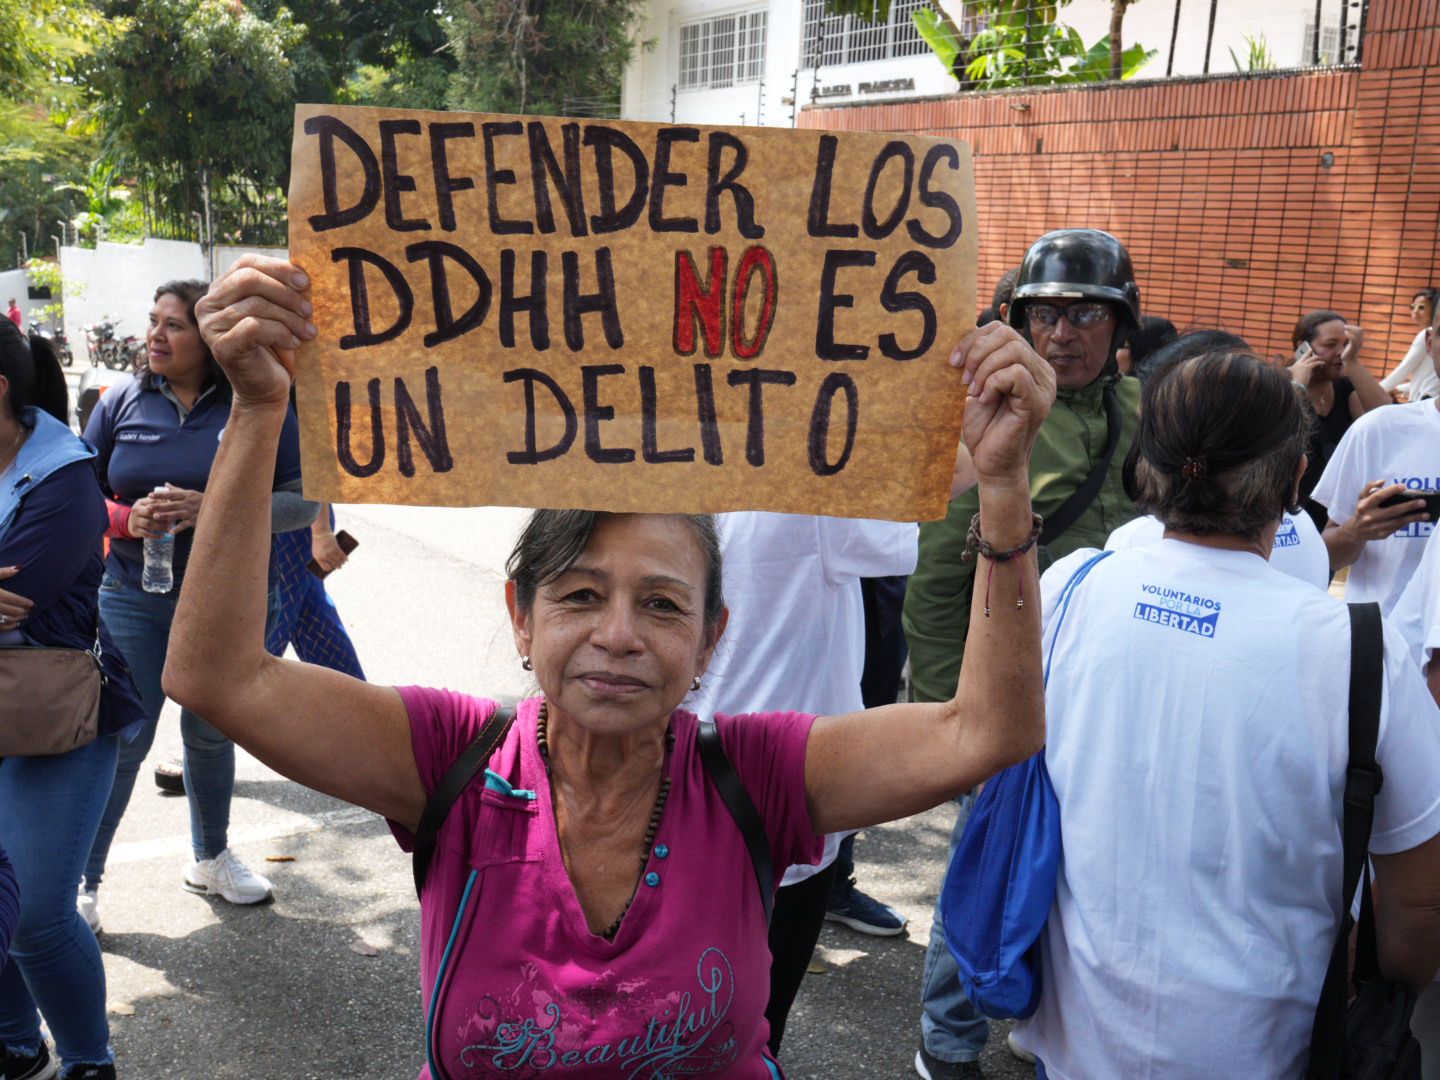 ALIANZA FRANCESA
DEFENDER LOS
DDHH NO ES
UN DELITO
VOLUNTARIOS
POR LA
LIBERTAD
Beautiful